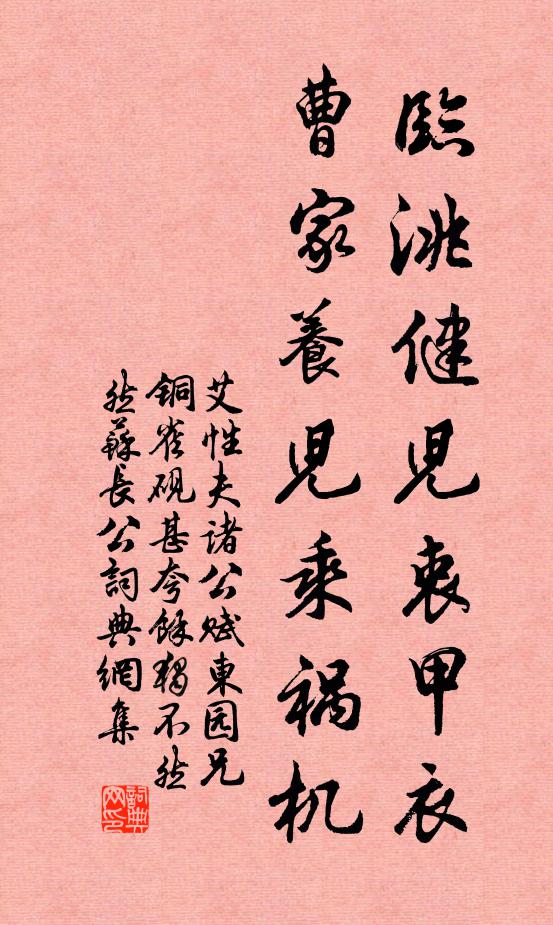 臨洮健兒衷甲衣
曹家養兒乘祸机
艾性夫诸公赋東园兄
铜雀砚甚夸余独不然
然蘇長公詞典網集
詞典网印